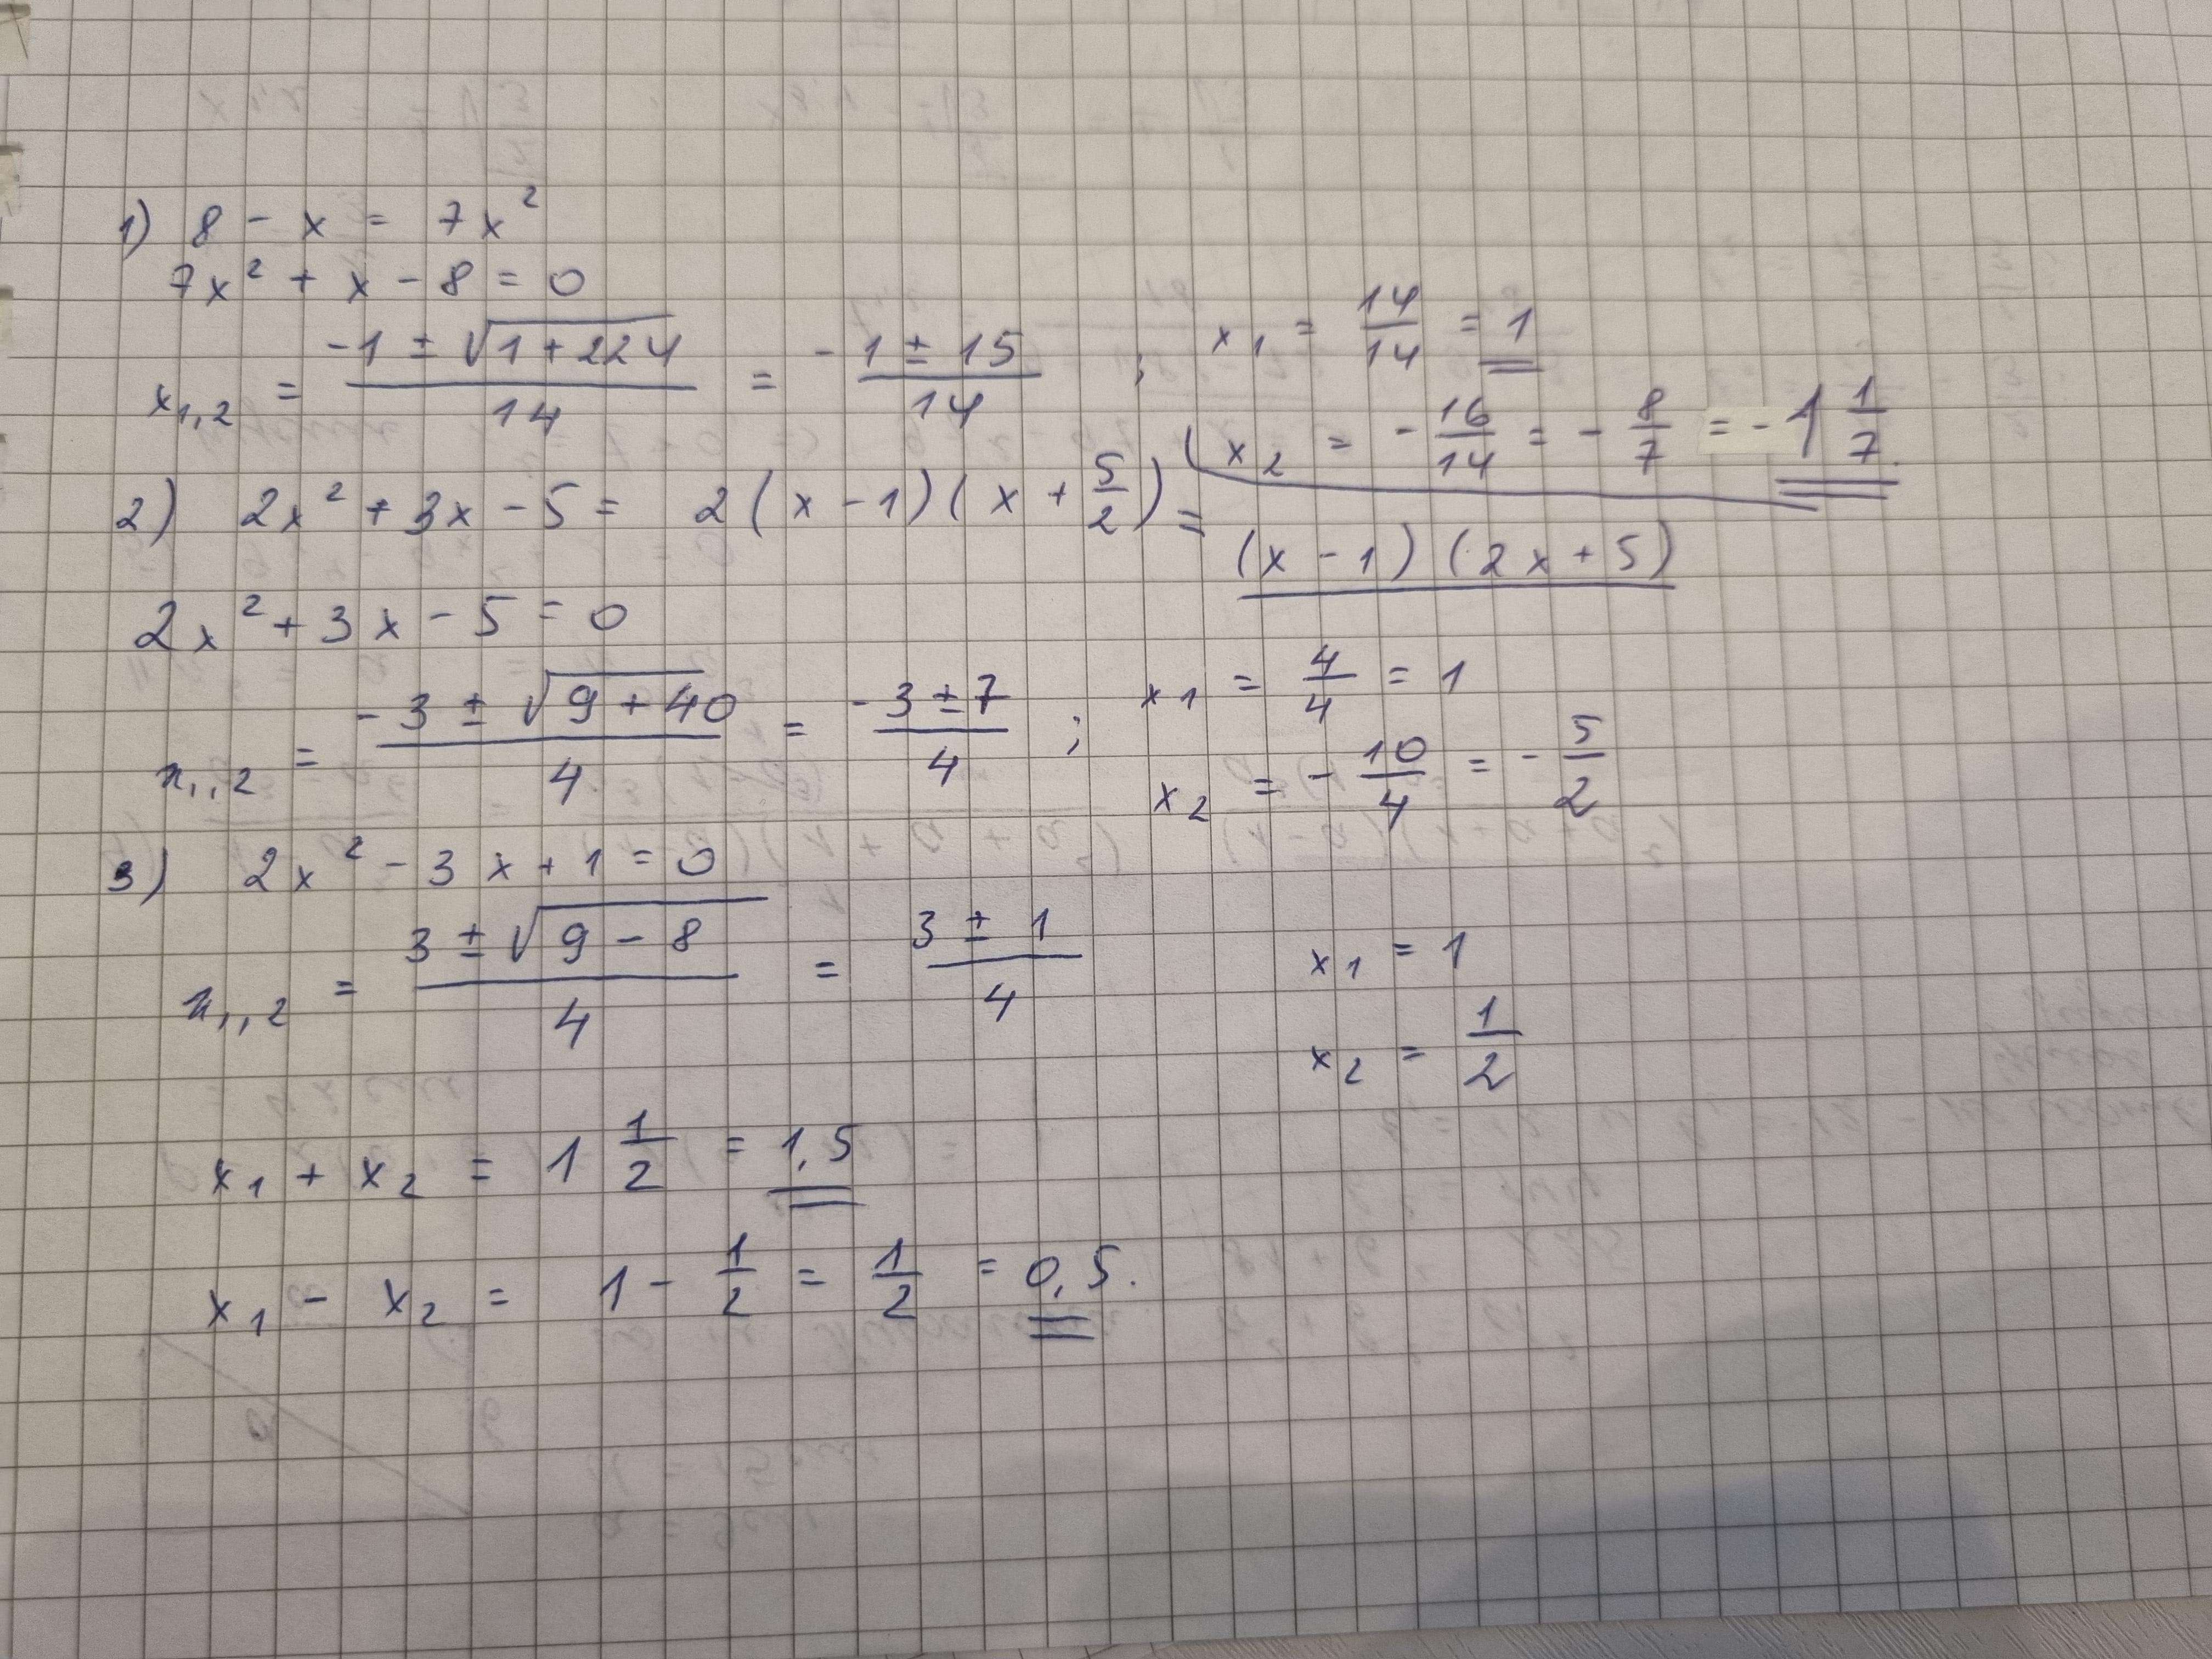 1) 8 - x = 7x²
7x² + x - 8 = 0
x1,2 = (-1 ± √(1+224))/14 = (-1 ± 15)/14 ; x1 = 14/14 = 1
x2 = -16/14 = -8/7 = -1 1/7
2) 2x² + 3x - 5 = 2(x - 1)(x + 5/2) =
(x - 1)(2x + 5)
2x² + 3x - 5 = 0
x1,2 = (-3 ± √(9+40))/4 = (-3 ± 7)/4 ; x1 = 4/4 = 1
x2 = -10/4 = -5/2
3) 2x² - 3x + 1 = 0
x1,2 = (3 ± √(9 - 8))/4 = (3 ± 1)/4 x1 = 1
x2 = 1/2
x1 + x2 = 1 1/2 = 1,5
x1 - x2 = 1 - 1/2 = 1/2 = 0,5.